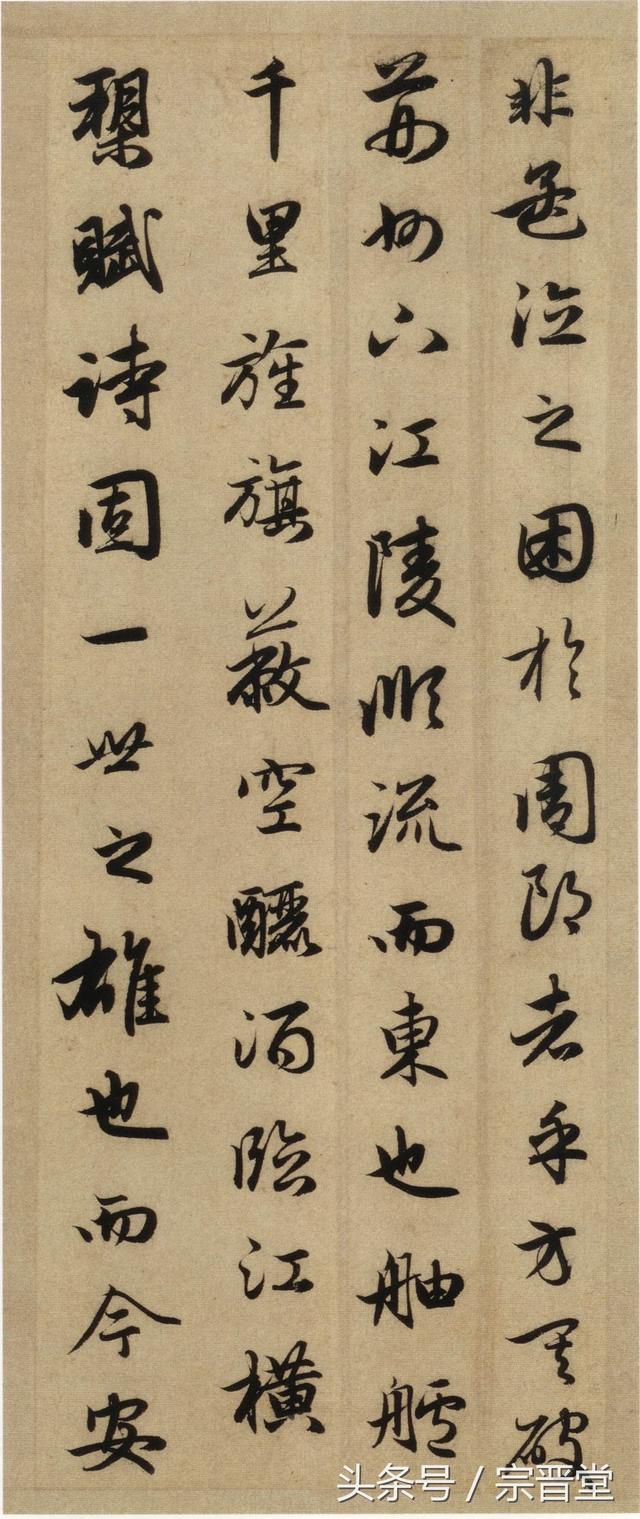 非孟德之困於周郎者乎方其破
荊州下江陵順流而東也舳艫
千里旌旗蔽空釃酒臨江橫
槊賦詩固一世之雄也而今安
头条号 / 宗晋堂